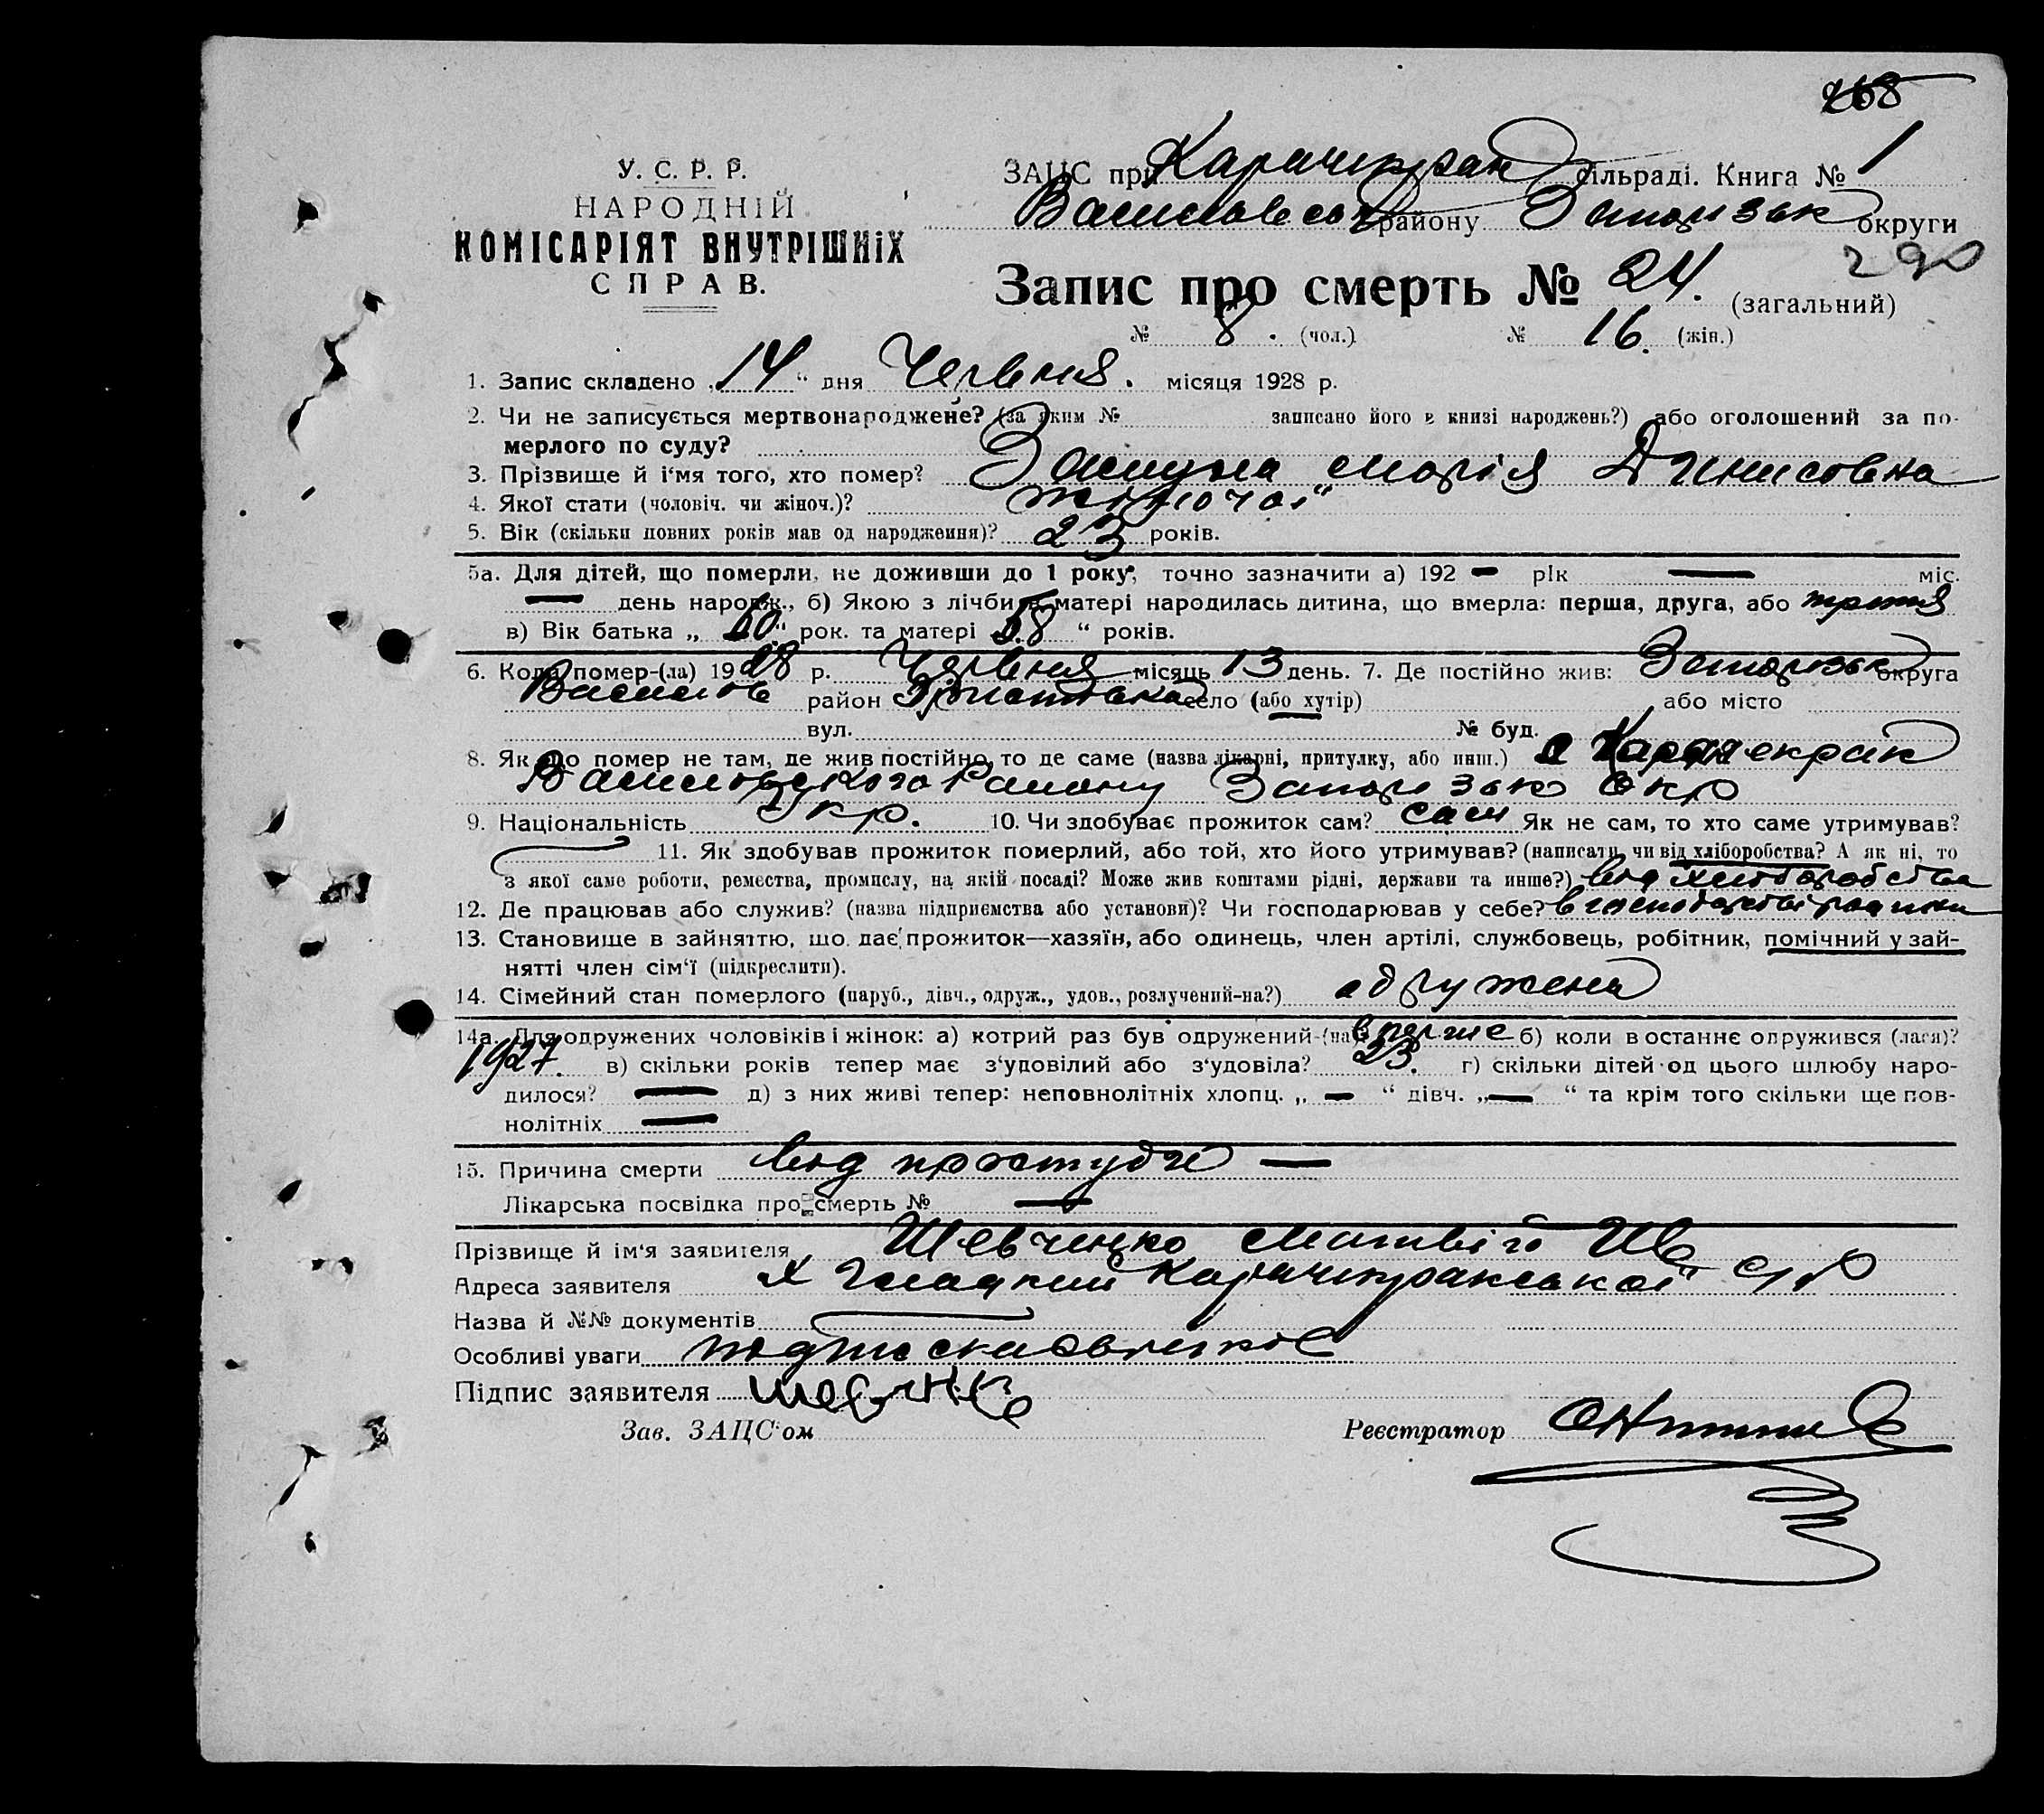 768
У. С. Р. Р.
НАРОДНІЙ
КОМІСАРІЯТ ВНУТРІШНІХ
СПРАВ.
ЗАЦС при Карачекрак сільраді. Книга № 1
Василівськ району Запорізьк округи
290
Запис про смерть № 24. (загальний)
№ 8. (чол.) № 16. (жін.)
1. Запис складено „14“ дня Червня. місяця 1928 р.
2. Чи не записується мертвонароджене? (за яким № записано його в книзі народжень?) або оголошений за по-
мерлого по суду?
3. Прізвище й і‘мя того, хто помер? Марія Динисовна
4. Якої стати (чоловіч. чи жіноч.)? жіночої
5. Вік (скільки повних років мав од народження)? 23 років.
5а. Для дітей, що померли, не доживши до 1 року, точно зазначити а) 192 — рік — міс.
— день народж., б) Якою з лічби в матері народилась дитина, що вмерла: перша, друга, або третя
в) Вік батька „60“ рок. та матері 58 “ років.
6. Коли помер-(ла) 1928 р. Червня місяць 13 день. 7. Де постійно жив: Запорізьк округа
Василів район село (або хутір) або місто
вул. № буд.
8. Як що помер не там, де жив постійно, то де саме (назва лікарні, притулку, або инш.) с Карачекрак
Василівського Району Запорізьк Окр
9. Національність Укр. 10. Чи здобуває прожиток сам? сам Як не сам, то хто саме утримував?
11. Як здобував прожиток померлий, або той, хто його утримував? (написати, чи від хліборобства? А як ні, то
з якої саме роботи, ремества, промислу, на якій посаді? Може жив коштами рідні, держави та инше?) від хліборобства
12. Де працював або служив? (назва підприємства або установи)? Чи господарював у себе? в господарстві родини
13. Становище в зайняттю, що дає прожиток—хазяїн, або одинець, член артілі, службовець, робітник, помічний у зай-
нятті член сім‘ї (підкреслити).
14. Сімейний стан померлого (паруб., дівч., одруж., удов., розлучений-на?) одружена
14а. Для одружених чоловіків і жінок: а) котрий раз був одружений-(на) вперше б) коли в останнє одружився (лася)?
1927. в) скільки років тепер має з‘удовілий або з‘удовіла? 23. г) скільки дітей од цього шлюбу наро-
дилося? — д) з них живі тепер: неповнолітніх хлопц. „ — “ дівч. „—“ та крім того скільки ще пов-
нолітніх —
15. Причина смерти від простуди —
Лікарська посвідка про смерть № —
Прізвище й ім‘я заявителя Шевченко Матвій
Адреса заявителя х Гладкий Карачекракської с/р
Назва й №№ документів
Особливі уваги
Підпис заявителя Шевченко
Зав. ЗАЦС‘ом Реєстратор